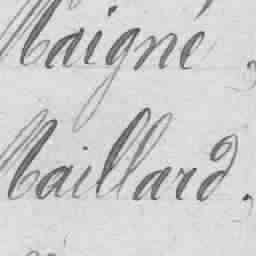 Maigné,
Maillard,